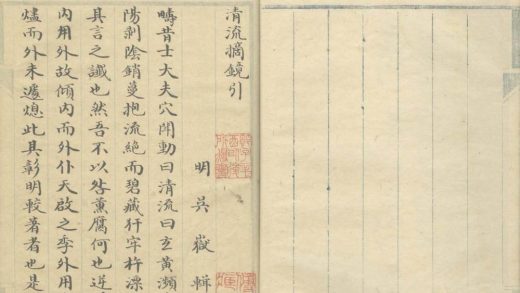 清流摘鏡引
明 吳嶽 輯
疇昔士大夫穴鬥動曰清流曰玄黃瀕
陽剥陰銷蔓抱流絕而碧藏犴牢杵漂
具言之讖也然吾不以咎薰膩何也逆
内用外故傾内而外仆天啟之季外用
燼而外未遽熄此其彰明較著者也是